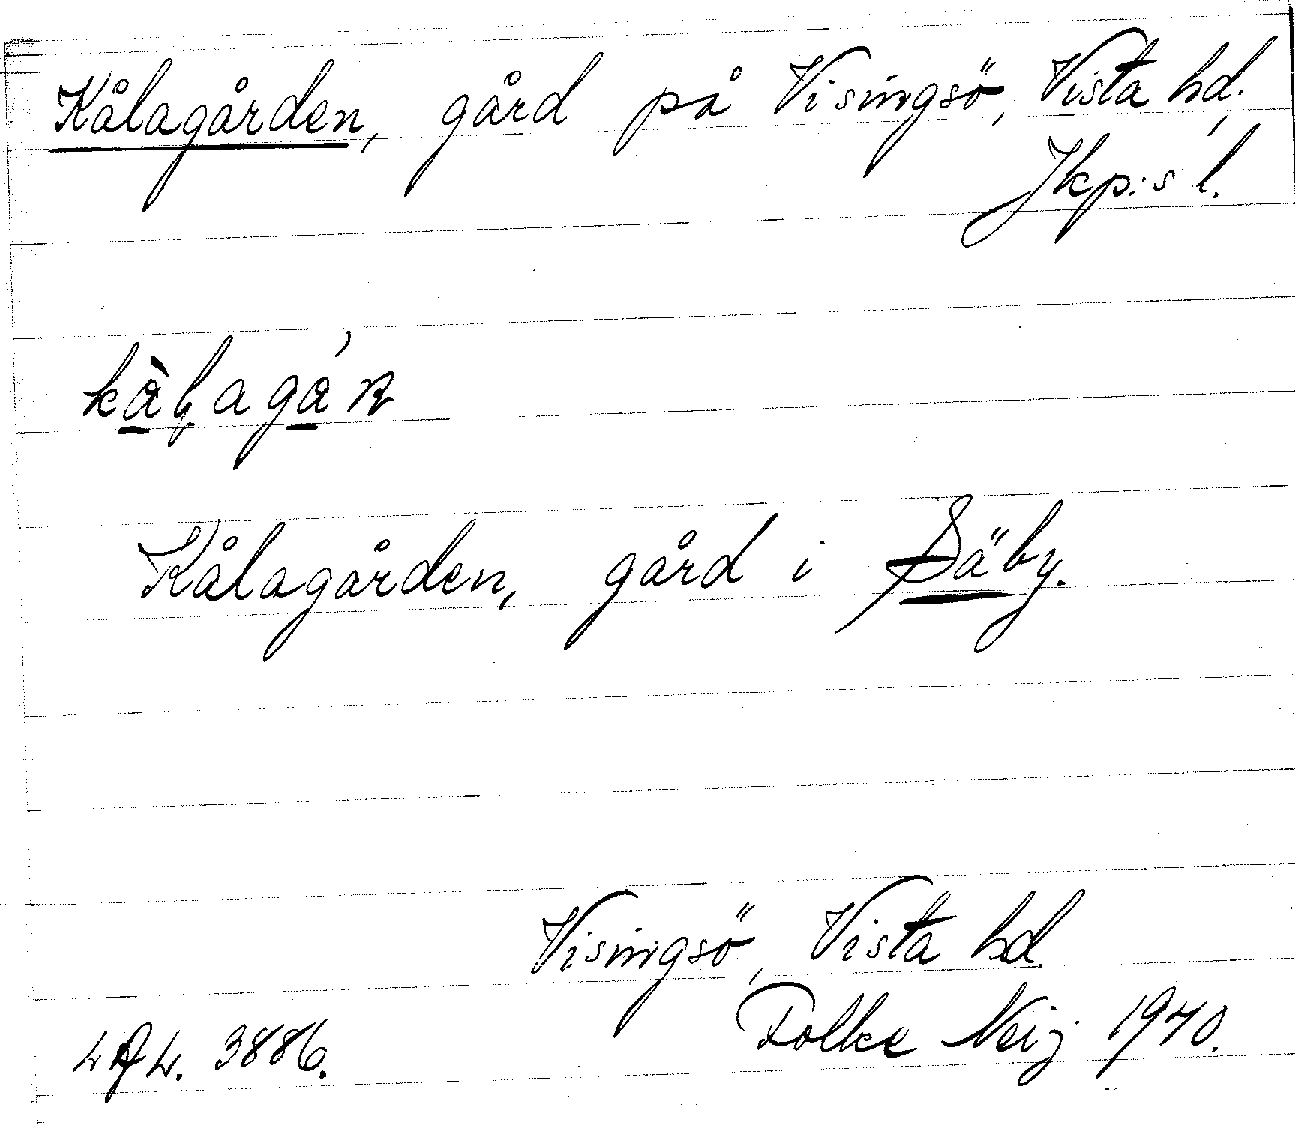 Kålagården, gård på Visingsö, Vista hd.
Jkp:s l.
kå̀ɭagǻɳ
Kålagården, gård i Säby.
Visingsö, Vista hd.
Folke Neij 1940.
3886.